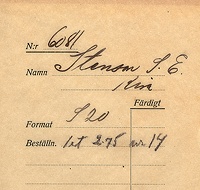 N:r 6081
Namn Stenson S. E.
Kiri
Färdigt
Format S 20
Beställn. 1 st 2.75 nr 14